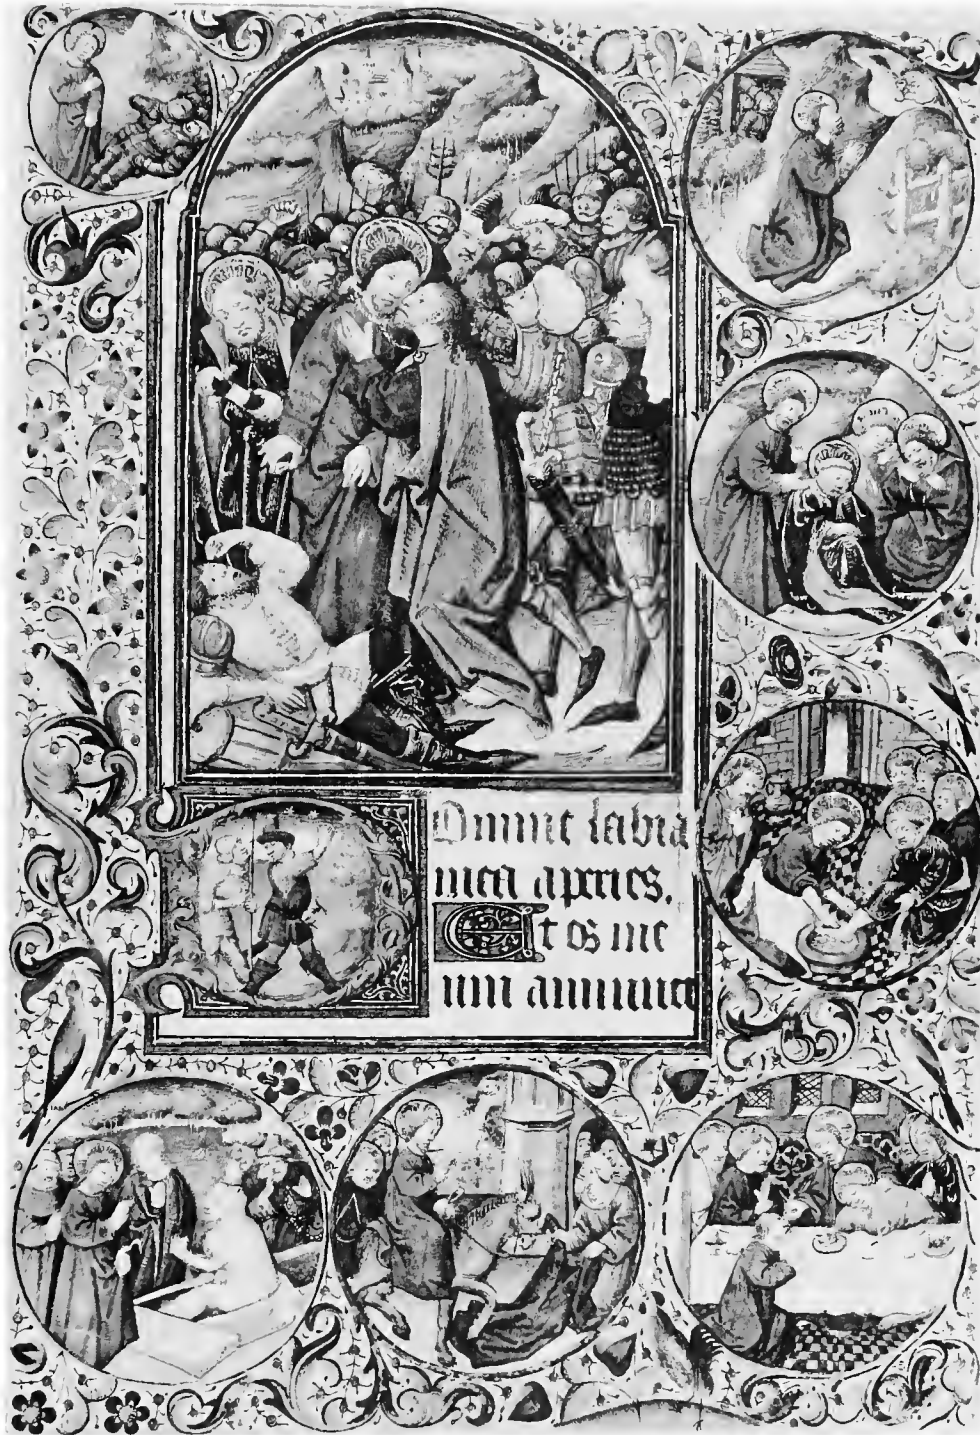 Domine labia
mea aperies.
Et os me
um annunci